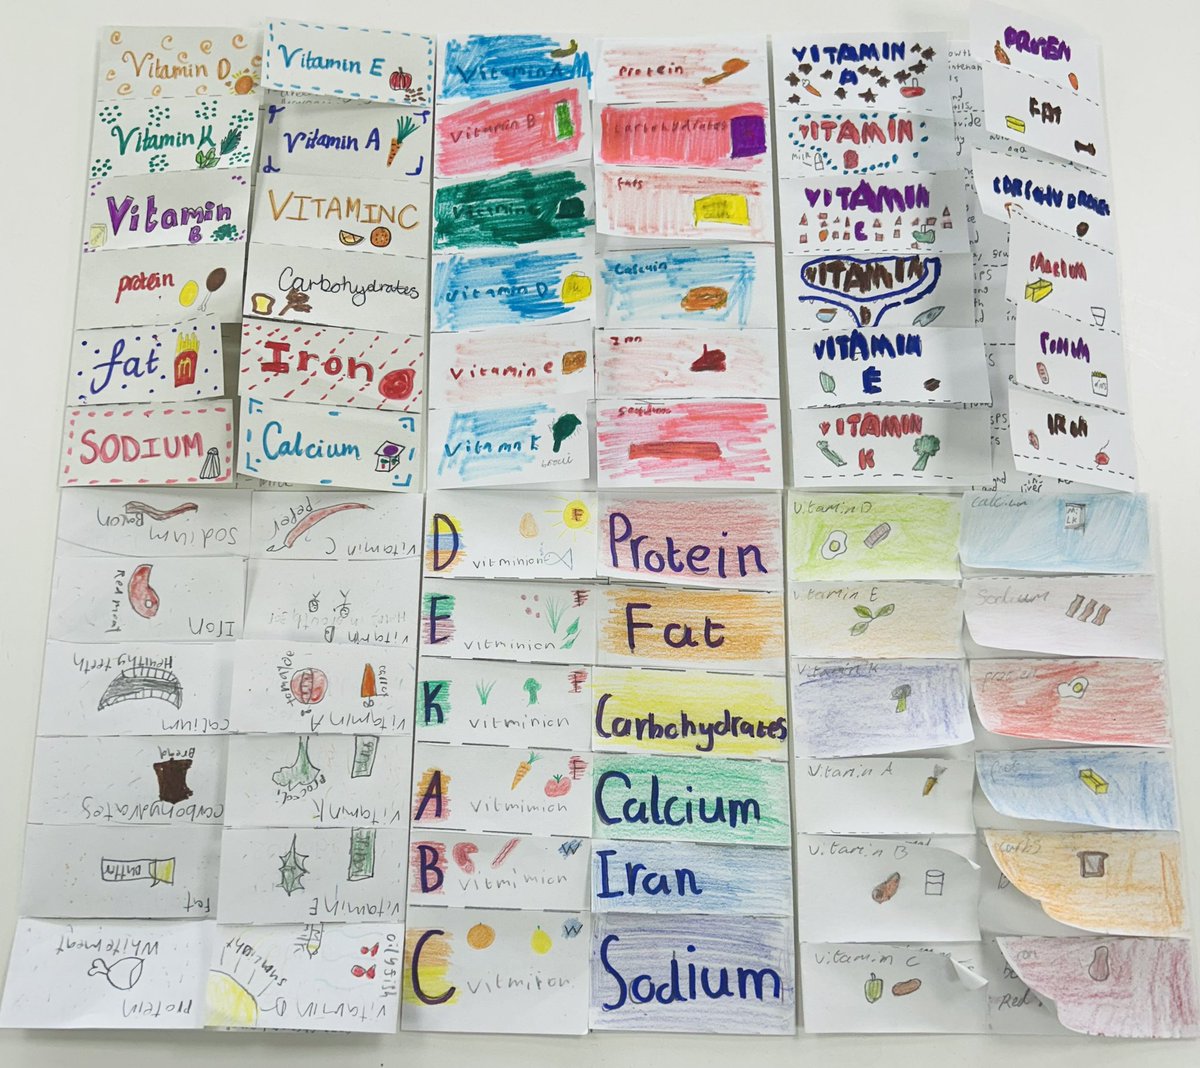 Vitamin D
Vitamin K
Vitamin
B
protein
fat
SODIUM
Vitamin E
Vitamin A
VITAMIN C
Carbohydrates
Iron
Calcium
Vitamin A
Vitamin B
Vitamin C
Vitamin D
Vitamin e
Vitamn K
Protein
Carbohydrates
fats
Calcuim
Iron
Sodium
VITAMIN
A
VITAMIN
MILK
VITAMIN
C
VITAMIN
VITAMIN
E
VITAMIN
K
PROTEIN
FAT
CARBOHYDRATES
IRON
Sodium
Bacon
Iron
Red meat
calium
Healthy teeth
carbohydrates
Bread
fat
Butter
protein
White meat
vitamin C
peper
vitamin
B
vitamin A
tomatoe
carrot
vitamin K
Broccoli
vitamin E
vitamin D
sunlight
oily fish
MILK
D
vitminion
E
vitminion
K
vitminion
A
vitmimion
B
vitmimion
W
C
vitmiton
W
Protein
Fat
Carbohydrates
Calcium
Iran
Sodium
Vitamin D
Vitamin E
Vitamin K
Vitamin A
Vitamin B
Vitamin C
Calcium
MILK
Sodium
Carbs
Red